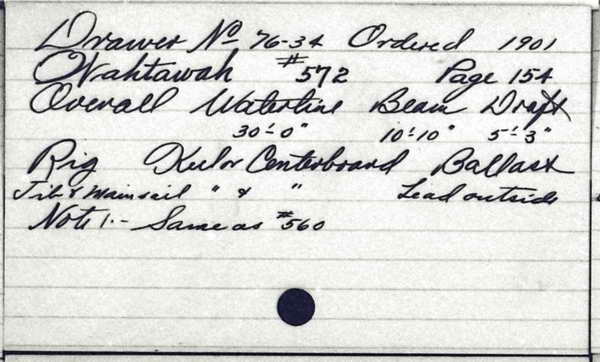 Drawer No 76-34 Ordered 1901
Wahtawah #572 Page 154
Overall Waterline Beam Draft
30'-0" 10'-10" 5'-3"
Rig Keel or Centerboard Ballast
Jib & Mainsail " & " Lead outside
Note 1.- Same as #560